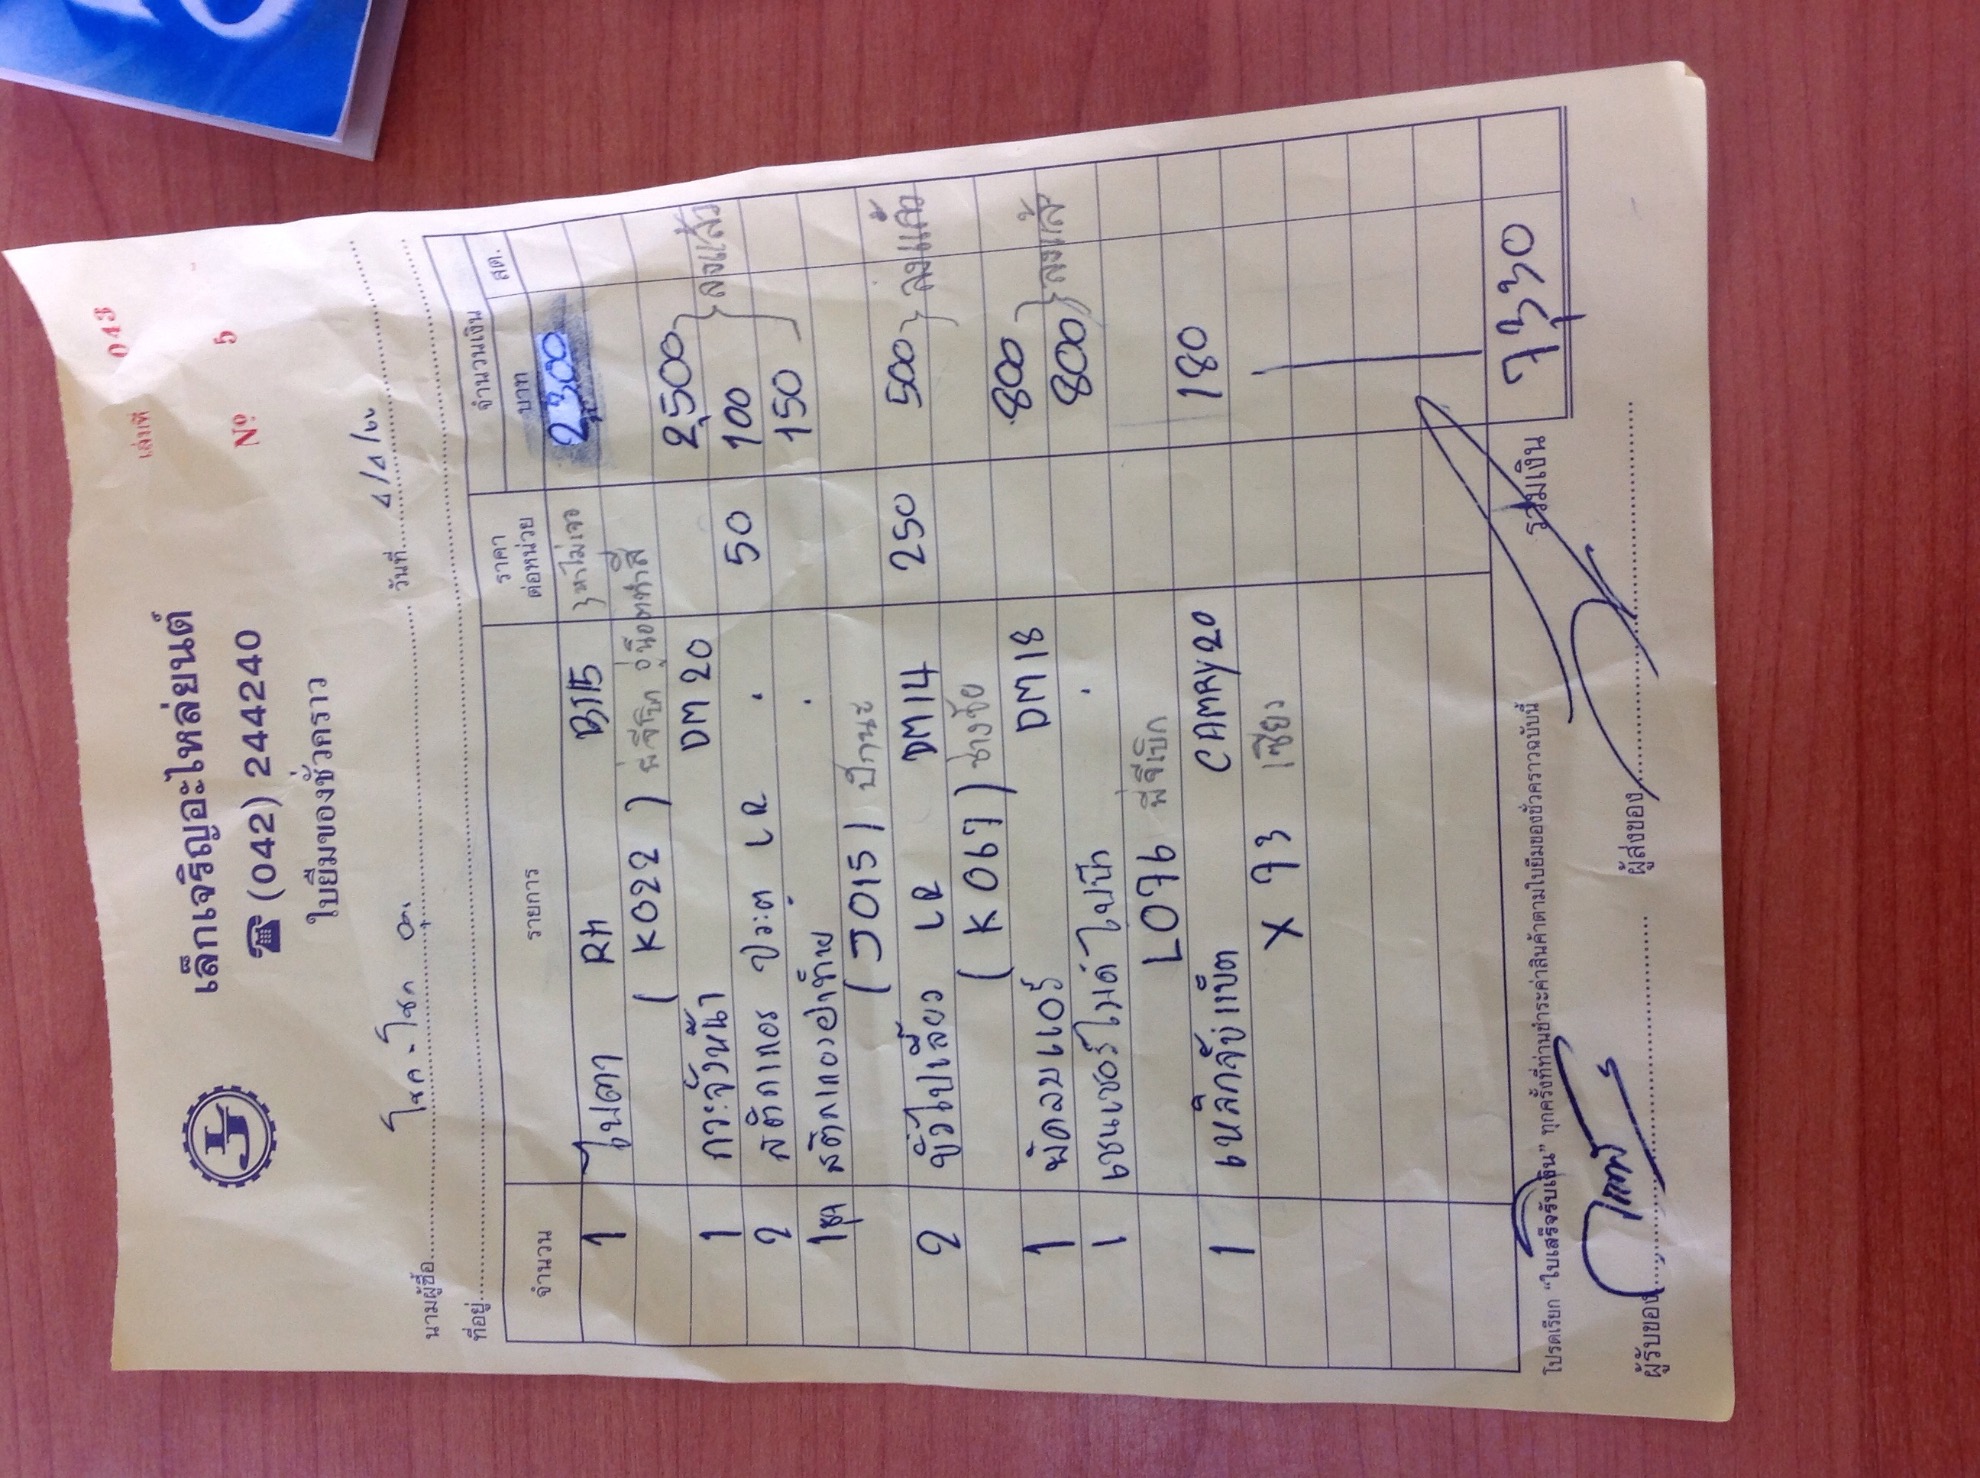 เล่มที่ 043
เล็กเจริญอะไหล่ยนต์
Nº 5
☎ (042) 244240
ใบยืมของชั่วคราว
นามผู้ซื้อ โชค-โชค วันที่ 4/4/
ที่อยู่
จำนวน รายการ ราคาต่อหน่วย จำนวนเงิน
บาท สต.
1 ไฟตา RH BJ15 หาไม่เจอ 2,300
(K022)
1 กระจังหน้า DM 20 2,500 ลงแล้ว
2 สติกเกอร์ ประตู LR . 50 100
1 ชุด สติกเกอร์ฝาท้าย . 150
(J015) ปีกนะ
2 ขั้วไฟเลี้ยว LR DM14 250 500 ลงแล้ว
(K067) ช่างชัย
1 พัดลมแอร์ DM18 800 ลงแล้ว
1 . 800
L076 พี่จีเบิก
1 เหล็กจับแบ็ต CAMRY20 180
X 73 เซียว
รวมเงิน 7,330
โปรดเรียก "ใบเสร็จรับเงิน" ทุกครั้งที่ท่านชำระค่าสินค้าตามใบยืมของชั่วคราวฉบับนี้
ผู้รับของ ผู้ส่งของ